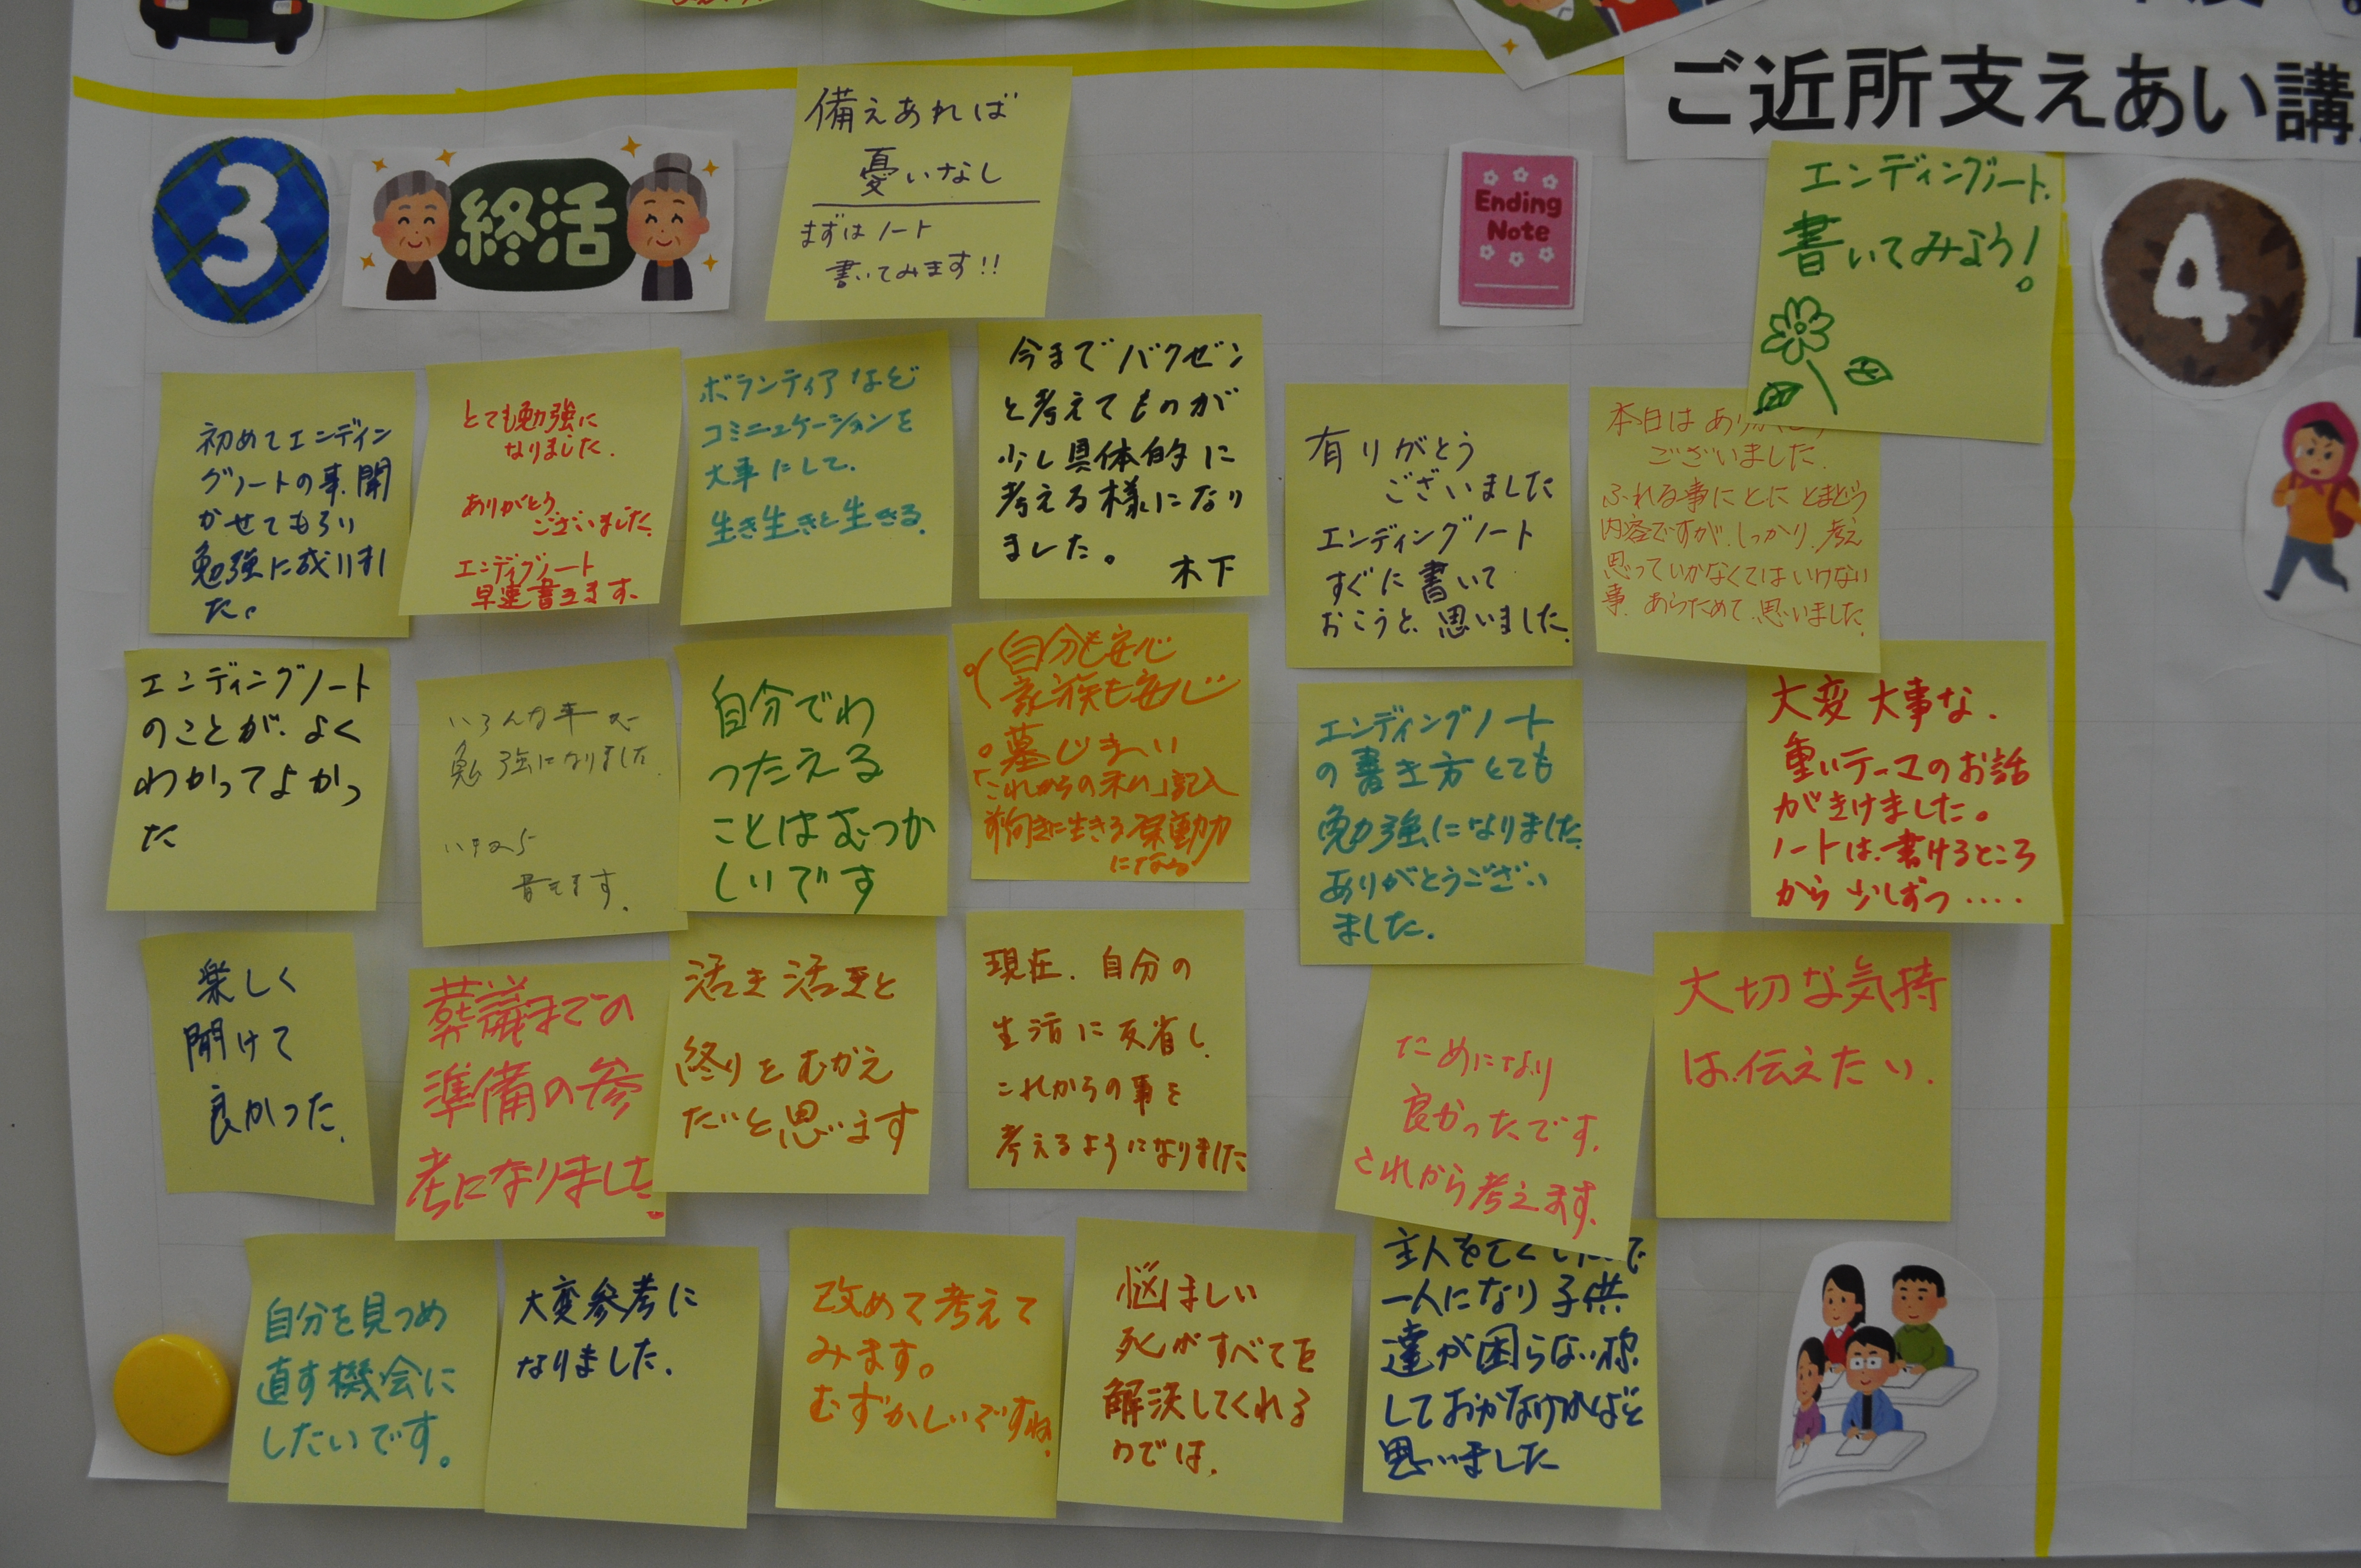 ご近所支えあい講
3
終活
備えあれば
憂いなし
まずはノート
書いてみます!!
Ending
Note
エンディングノート.
書いてみよう!
4
初めてエンディン
グノートの事.聞
かせてもらい
勉強に成りまし
た。
とても勉強に
なりました.
ありがとう
ございました.
エンディグノート
早速書きます.
ボランティアなど
コミニュケーションを
大事にして.
生き生きと生きる.
今までバクゼン
と考えてものが
少し具体的に
考える様になり
ました。
木下
有りがとう
ございました
エンディングノート
すぐに書いて
おこうと、思いました.
本日は
ございました.
ふれる事にとに とまどう
内容ですが.しっかり.考え
思っていかなくてはいけない
事.あらためて.思いました.
エンディングノート
のことが、よく
わかってよかっ
た
いろんな事
勉強になりました.
書きます.
自分でわ
つたえる
ことはむつか
しいです
自分も安心
家族も安心
墓じまい
「これからの私」記入
前向きに生きる原動力
になる
エンディングノート
の書き方とても
勉強になりました
ありがとうござい
ました.
大変大事な、
重いテーマのお話
がきけました。
ノートは、書けるところ
から少しずつ‥‥
楽しく
聞けて
良かった.
葬議までの
準備の参
考になりました.
活き活きと
終りをむかえ
たいと思います
現在.自分の
生活に反省し
これからの事を
考えるようになりました
ためになり
良かったです.
これから考えます.
大切な気持
は.伝えたい.
自分を見つめ
直す機会に
したいです。
大変参考に
なりました.
改めて考えて
みます。
むずかしいですね.
悩ましい
死がすべてを
解決してくれる
のでは.
主人を亡く
一人になり子供
達が困らない様
しておかなければと
思いました